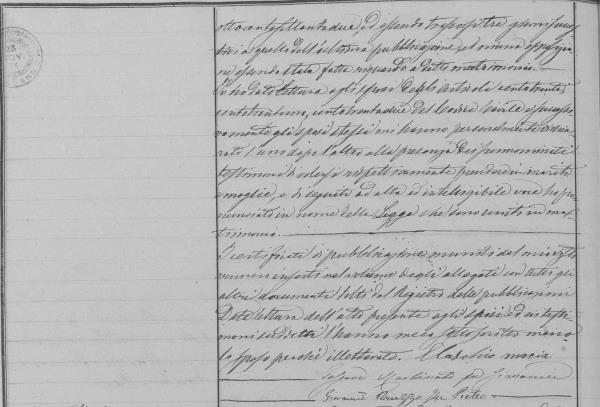 otto cento settantadue ed essendo trascorsi tre giorni succes
sivi a quello dell'ultima pubblicazione, ed niuna opposizio
ne essendo stata fatta riguardo a detto matrimonio.
Io ho dato lettura agli sposi degli articoli cento trenta,
cento trentuno, cento trentadue del Codice Civile e succes
sivamente gli sposi stessi mi hanno personalmente dichia
rato l'uno dopo l'altro alla presenza dei summominati
testimoni di volersi rispettivamente prendere in marito
e moglie, e di seguito ad alta ed intelligibile voce ho pro
nunciato in nome della Legge che sono uniti in ma
trimonio.
I certificati di pubblicazione muniti del mio visto
vennero inserti nel volume degli allegati con tutti gli
altri documenti tolti dal Registro delle pubblicazioni
Data lettura dell'atto presente agli sposi ed ai testi
moni suddetti l'hanno meco sottoscritto meno
lo sposo perchè illetterato. maria
fu Giovanni
Giovanni fu Pietro